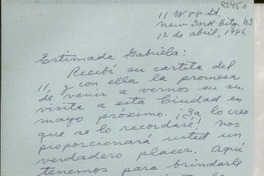 11 W 88 St.
New York City, N.Y.
12 de abril, 1946
Estimada Gabriela:
Recibí su cartita del
11, y con ella la promesa
de venir a vernos en su
visita a esta Ciudad en
mayo próximo. ¡Ya lo creo
que se lo recordaré! Nos
proporcionará usted un
verdadero placer. Aquí
tenemos para brindarle